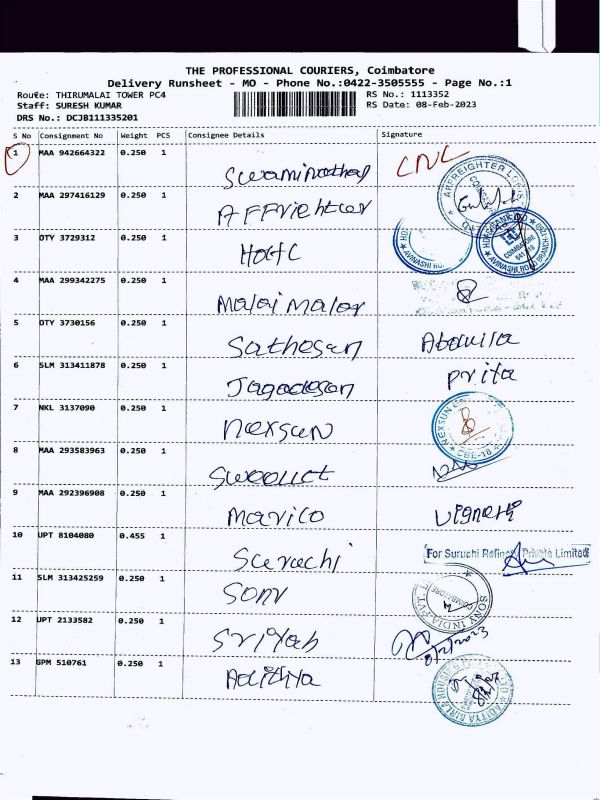 THE PROFESSIONAL COURIERS, Coimbatore
Delivery Runsheet - MO - Phone No.:0422-3505555 - Page No.:1
Route: THIRUMALAI TOWER PC4
RS No.: 1113352
Staff: SURESH KUMAR
RS Date: 08-Feb-2023
DRS No.: DCJB111335201
S No Consignment No Weight PCS Consignee Details Signature
1 MAA 942664322 0.250 1 Swaminathan CNC
2 MAA 297416129 0.250 1 AFFriehter
3 OTY 3729312 0.250 1
4 MAA 299342275 0.250 1 Malai Malar
5 OTY 3730156 0.250 1 Sathesan
6 SLM 313411878 0.250 1 Jagadesan Priya
7 NKL 3137090 0.250 1 Nexsun
8 MAA 293583963 0.250 1
9 MAA 292396908 0.250 1 Marico Vignesh
10 UPT 8104080 0.455 1 Suruchi For Suruchi Refinery Private Limited
11 SLM 313425259 0.250 1 Sony SONY INDIA PVT.
12 UPT 2133582 0.250 1 Sriyah 8/2/2023
13 GPM 510761 0.250 1 Adithya